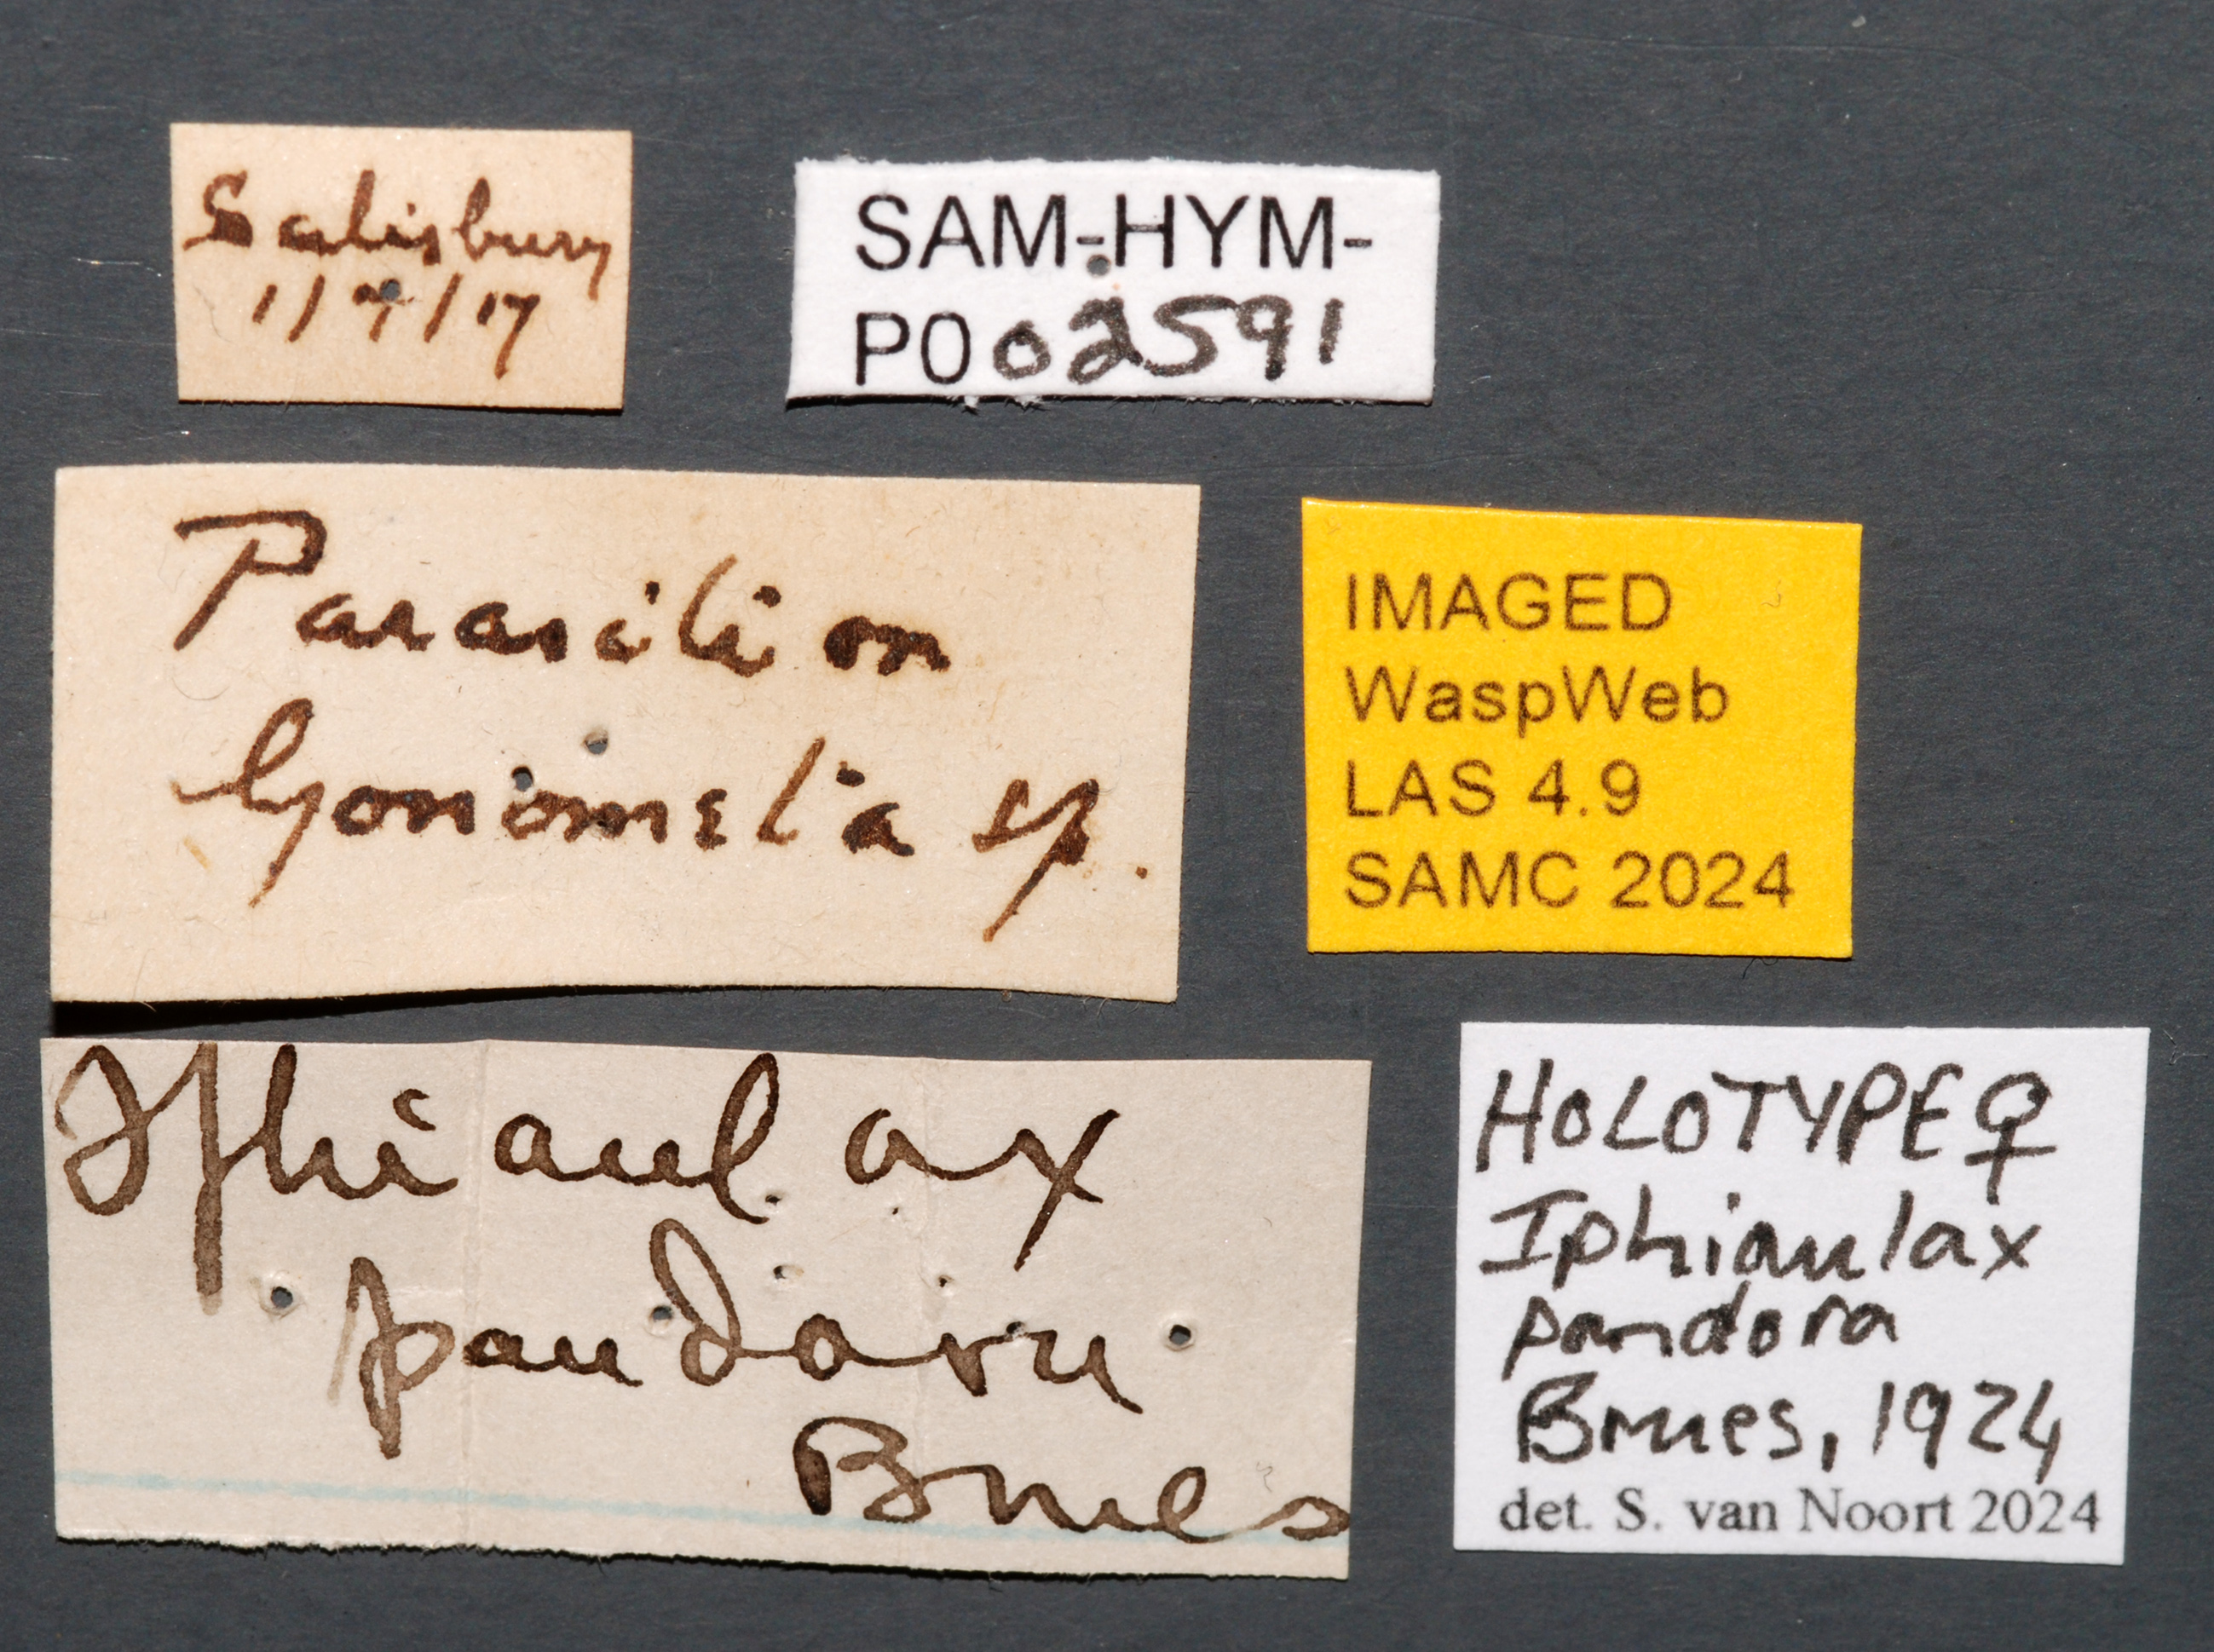 Salisbury
1/7/17
SAM-HYM-
P002591
Parasitic on
Gonometa sp.
IMAGED
WaspWeb
LAS 4.9
SAMC 2024
Iphiaulax
pandora
Brues
HOLOTYPE ♀
Iphiaulax
pandora
Brues, 1924
det. S. van Noort 2024